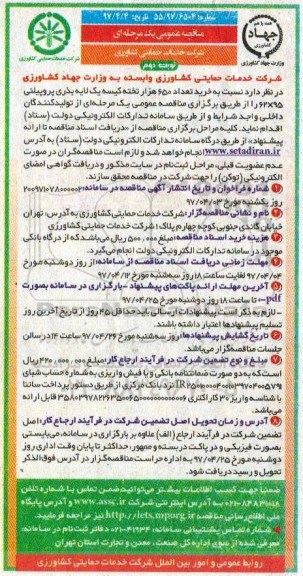 شماره: ۵۵/۹۷/۶۵۰۴ تاریخ: ۹۷/۴/۲
مناقصه عمومی یک مرحله ای
شرکت خدمات حمایتی کشاورزی
نوبت دوم
جهاد
وزارت جهاد کشاورزی
شرکت خدمات حمایتی کشاورزی
شرکت خدمات حمایتی کشاورزی وابسته به وزارت جهاد کشاورزی
در نظر دارد نسبت به خرید تعداد ۶۵۰ هزار تخته کیسه یک لایه بذری پروپیلنی
۶۲×۹۵ را از طریق برگزاری مناقصه عمومی یک مرحله‌ای از تولیدکنندگان
داخلی واجد شرایط و از طریق سامانه تدارکات الکترونیکی دولت (ستاد)
اقدام نماید. کلیه مراحل برگزاری مناقصه از دریافت اسناد مناقصه تا ارائه
پیشنهاد، از طریق درگاه سامانه تدارکات الکترونیکی دولت (ستاد) به آدرس
www.setadiran.ir انجام خواهد شد و لازم است مناقصه‌گران در صورت
عدم عضویت قبلی، مراحل ثبت‌نام در سایت مذکور و دریافت گواهی امضای
الکترونیکی (توکن) را جهت شرکت در مناقصه محقق سازند.
۱ شماره فراخوان و تاریخ انتشار آگهی مناقصه در سامانه:
روز یکشنبه مورخ ۹۷/۰۴/۰۳
۲ نام و نشانی مناقصه‌گزار: شرکت خدمات حمایتی کشاورزی به آدرس: تهران
خیابان گاندی جنوبی کوچه چهارم پلاک ۱ شرکت خدمات حمایتی کشاورزی
۳ هزینه خرید اسناد مناقصه: مبلغ ۵۰۰/۰۰۰ ریال می‌باشد که از درگاه بانکی
موجود در سامانه تدارکات الکترونیکی دولت انجام می‌گیرد.
۴ مهلت زمانی دریافت اسناد مناقصه از سامانه: از روز دوشنبه مورخ
۹۷/۰۴/۰۴ لغایت ساعت ۱۸ روز سه‌شنبه مورخ ۹۷/۰۴/۱۲
۵ آخرین مهلت ارائه پاکت‌های پیشنهاد - بارگزاری در سامانه بصورت
pdf- تا ساعت ۱۸ روز دوشنبه مورخ ۹۷/۰۴/۲۵
- لازم به ذکر است پیشنهادات ارسالی باید حداقل ۴۵ روز از تاریخ آخرین روز
تسلیم پیشنهادها اعتبار داشته باشند.
۶ تاریخ گشایش پیشنهادها: روز سه‌شنبه مورخ ۹۷/۰۴/۲۶ ساعت ۱۴ در سالن
جلسات مناقصه‌گزار می‌باشد.
۷ مبلغ و نوع تضمین شرکت در فرآیند ارجاع کار: مبلغ ۴۲۰/۰۰۰/۰۰۰ ریال
است که به دو صورت ضمانتنامه بانکی و یا فیش واریزی به شماره حساب شبای
نزد بانک مرکزی از طریق دستور پرداخت ساتنا
با شناسه واریز ۳۰ کاراکتری قابل ارائه
می‌باشد.
۸ آدرس و زمان تحویل اصل تضمین شرکت در فرآیند ارجاع کار: اصل
تضمین شرکت در فرآیند ارجاع (الف) علاوه بر بارگزاری در سامانه، می‌بایستی
بصورت فیزیکی و در پاکت دربسته و ممهور، حداکثر تا پایان وقت اداری روز
دوشنبه مورخ ۹۷/۰۴/۲۵ به اداره حراست مناقصه‌گزار در آدرس فوق‌الذکر
تحویل و رسید دریافت شود.
ضمنا جهت کسب اطلاعات بیشتر می‌توانید ضمن تماس با شماره تلفن
به آدرس اینترنتی شرکت www.assc.ir و آدرس پایگاه
ملی اطلاع رسانی مناقصه http://iets.mporg.ir نیز مراجعه فرمایید.
شماره تماس پشتیبانی سامانه: ۴۱۹۳۴-۰۲۱ دفاتر ثبت‌نام در سامانه:
معرفی شده از سوی اداره کل صنعت، معدن و تجارت استان تهران
روابط عمومی و امور بین الملل شرکت خدمات حمایتی کشاورزی